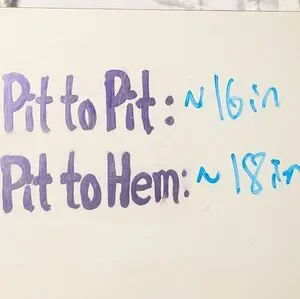 Pit to Pit: ~16in
Pit to Hem: ~18in